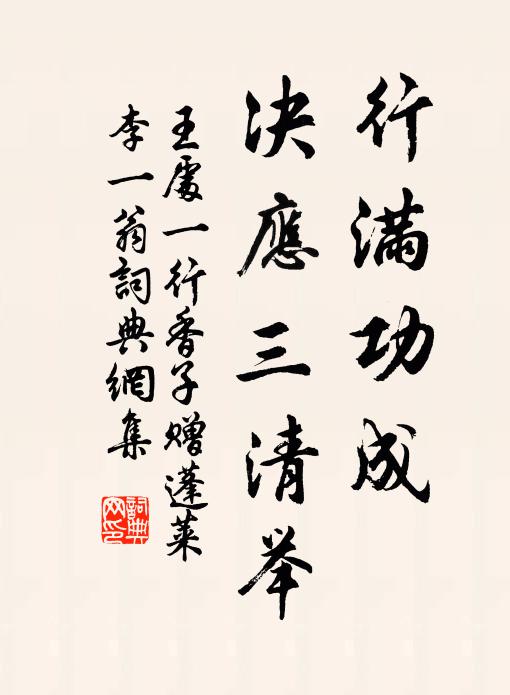 行滿功成
決應三清举
王處一行香子贈蓬萊
李一翁詞典網集
詞典
网印